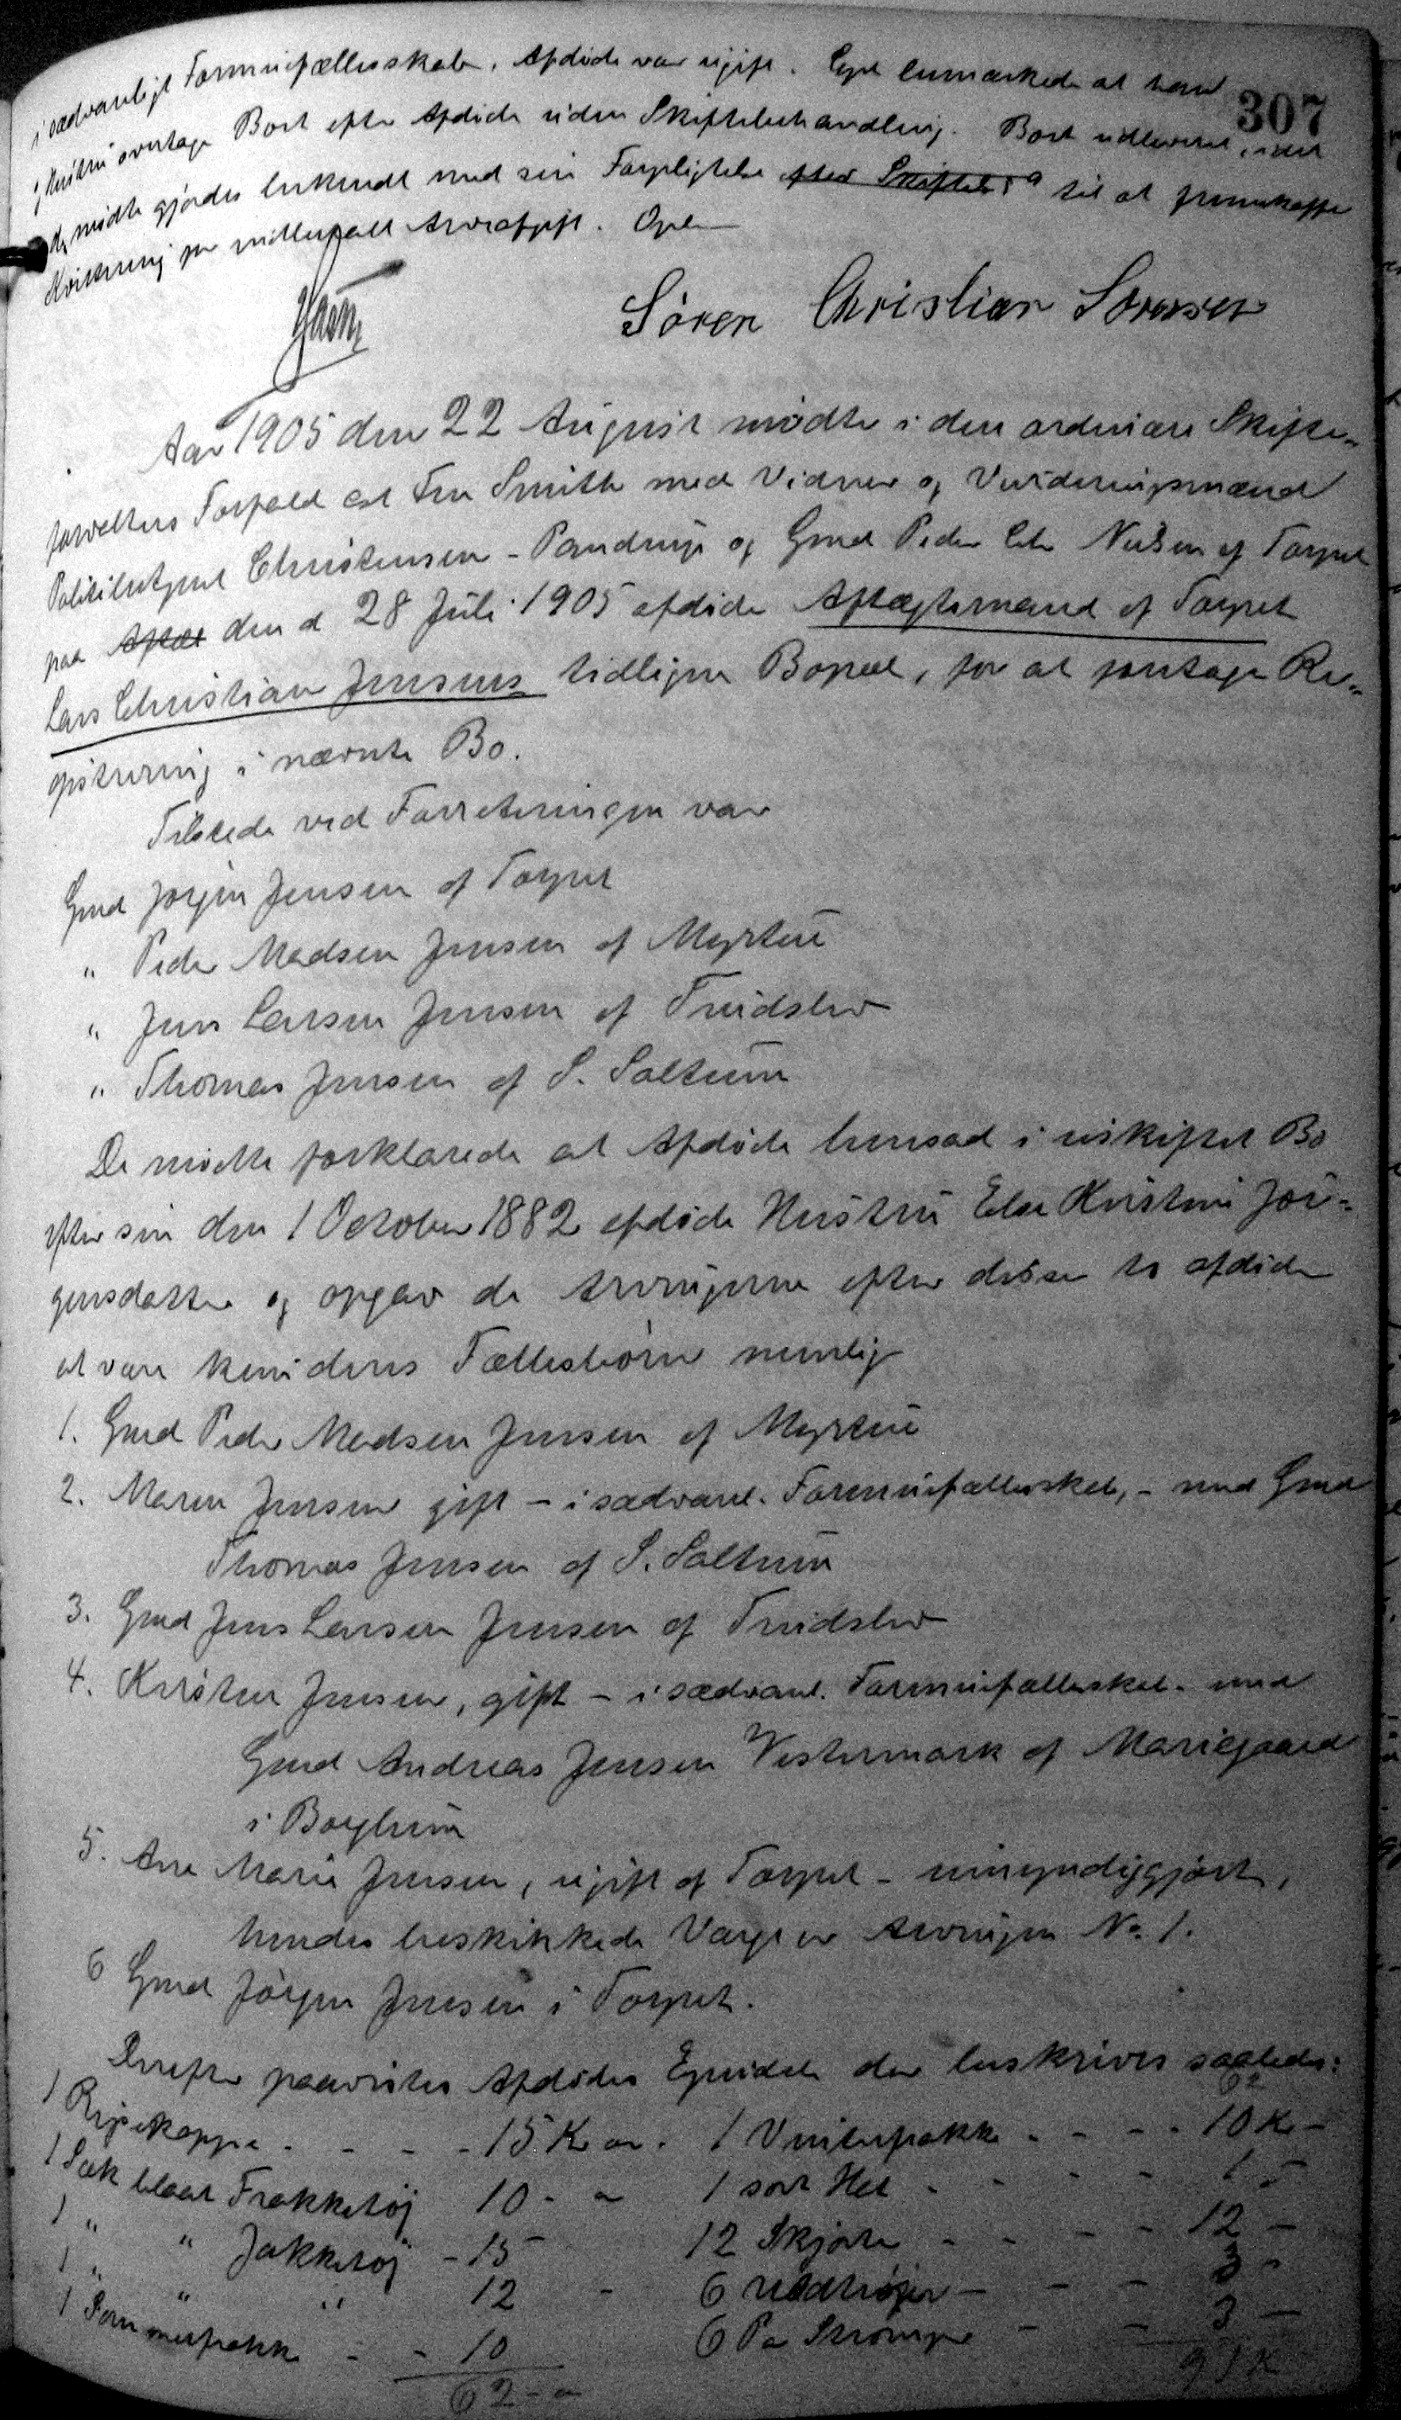 307
i sædvanligt Formuefællesskab. Afdøde var ugift. Comp bemærkede at hans
Hustru overtager Boet efter Afdøde uden Skiftebehandling. Boet udleveret, idet
de mødte gjordes bekendt med sin Forpligtelse efter Skiftel § 9 til at fremskaffe
Kvittering for midlertidig Arveafgift. Oplæ
Sören Christian Sörensen
Aar 1905 den 22 August mødte i den ordinære Skifte-
forvalters Forfald cst Fm Smith med Vidner og Vurderingsmænd
Politibetjent Christensen - Pandrup og Gmd Peder Chr Nielsen af Torpet
paa Aftæt den d 28 Juli 1905 afdøde Aftægtsmand af Torpet
Lars Christian Jensens tidligere Bopæl, for at foretage Re-
gistrering i nævnte Bo.
Tilstede ved Forretningen var
Gmd Jørgen Jensen af Torpet
" Peder Madsen Jensen af Myrtue
" Jens Larsen Jensen af Truidslev
" Thomas Jensen af S. Saltum
De mødte forklarede at Afdøde hensad i uskiftet Bo
efter sin den 1 October 1882 afdøde Hustru Else Kirstine Jør-
gensdatter og opgav de Arvingerne efter disse to afdøde
at være kun deres Fællesbørn nemlig
1. Gmd Peder Madsen Jensen af Myrtue
2. Maren Jensen gift - i sædvanl. Formuefællesskab, - med Gmd
Thomas Jensen af S. Saltum
3. Gmd Jens Larsen Jensen af Truidslev
4. Kirsten Jensen, gift - i sædvanl. Formuefællesskab - med
Gmd Andreas Jensen Vestermark af Mariegaard
i Børglum
5. Ane Marie Jensen, ugift af Torpet - umyndiggjort,
hendes beskikkede Værge er Arvingen No. 1.
6 Gmd Jørgen Jensen i Torpet.
Derefter paavistes Afdødes Ejendele der beskrives saaledes:
62
1 Rejsekappe - - - 15 Kr " 1 Vinterfrakke - - - 10 Kr -
1 Sæt blaat Frakketøj 10 - " 1 sort Hat - - - 1 -
1 " " Jakketøj - 15 12 Skjorte - - - 12 -
1 " " " 12 - 6 uldtrøjer - - - 3 -
1 Sommerfrakke - - 10 6 Par Strømper - - 3 -
62 - " 91 K